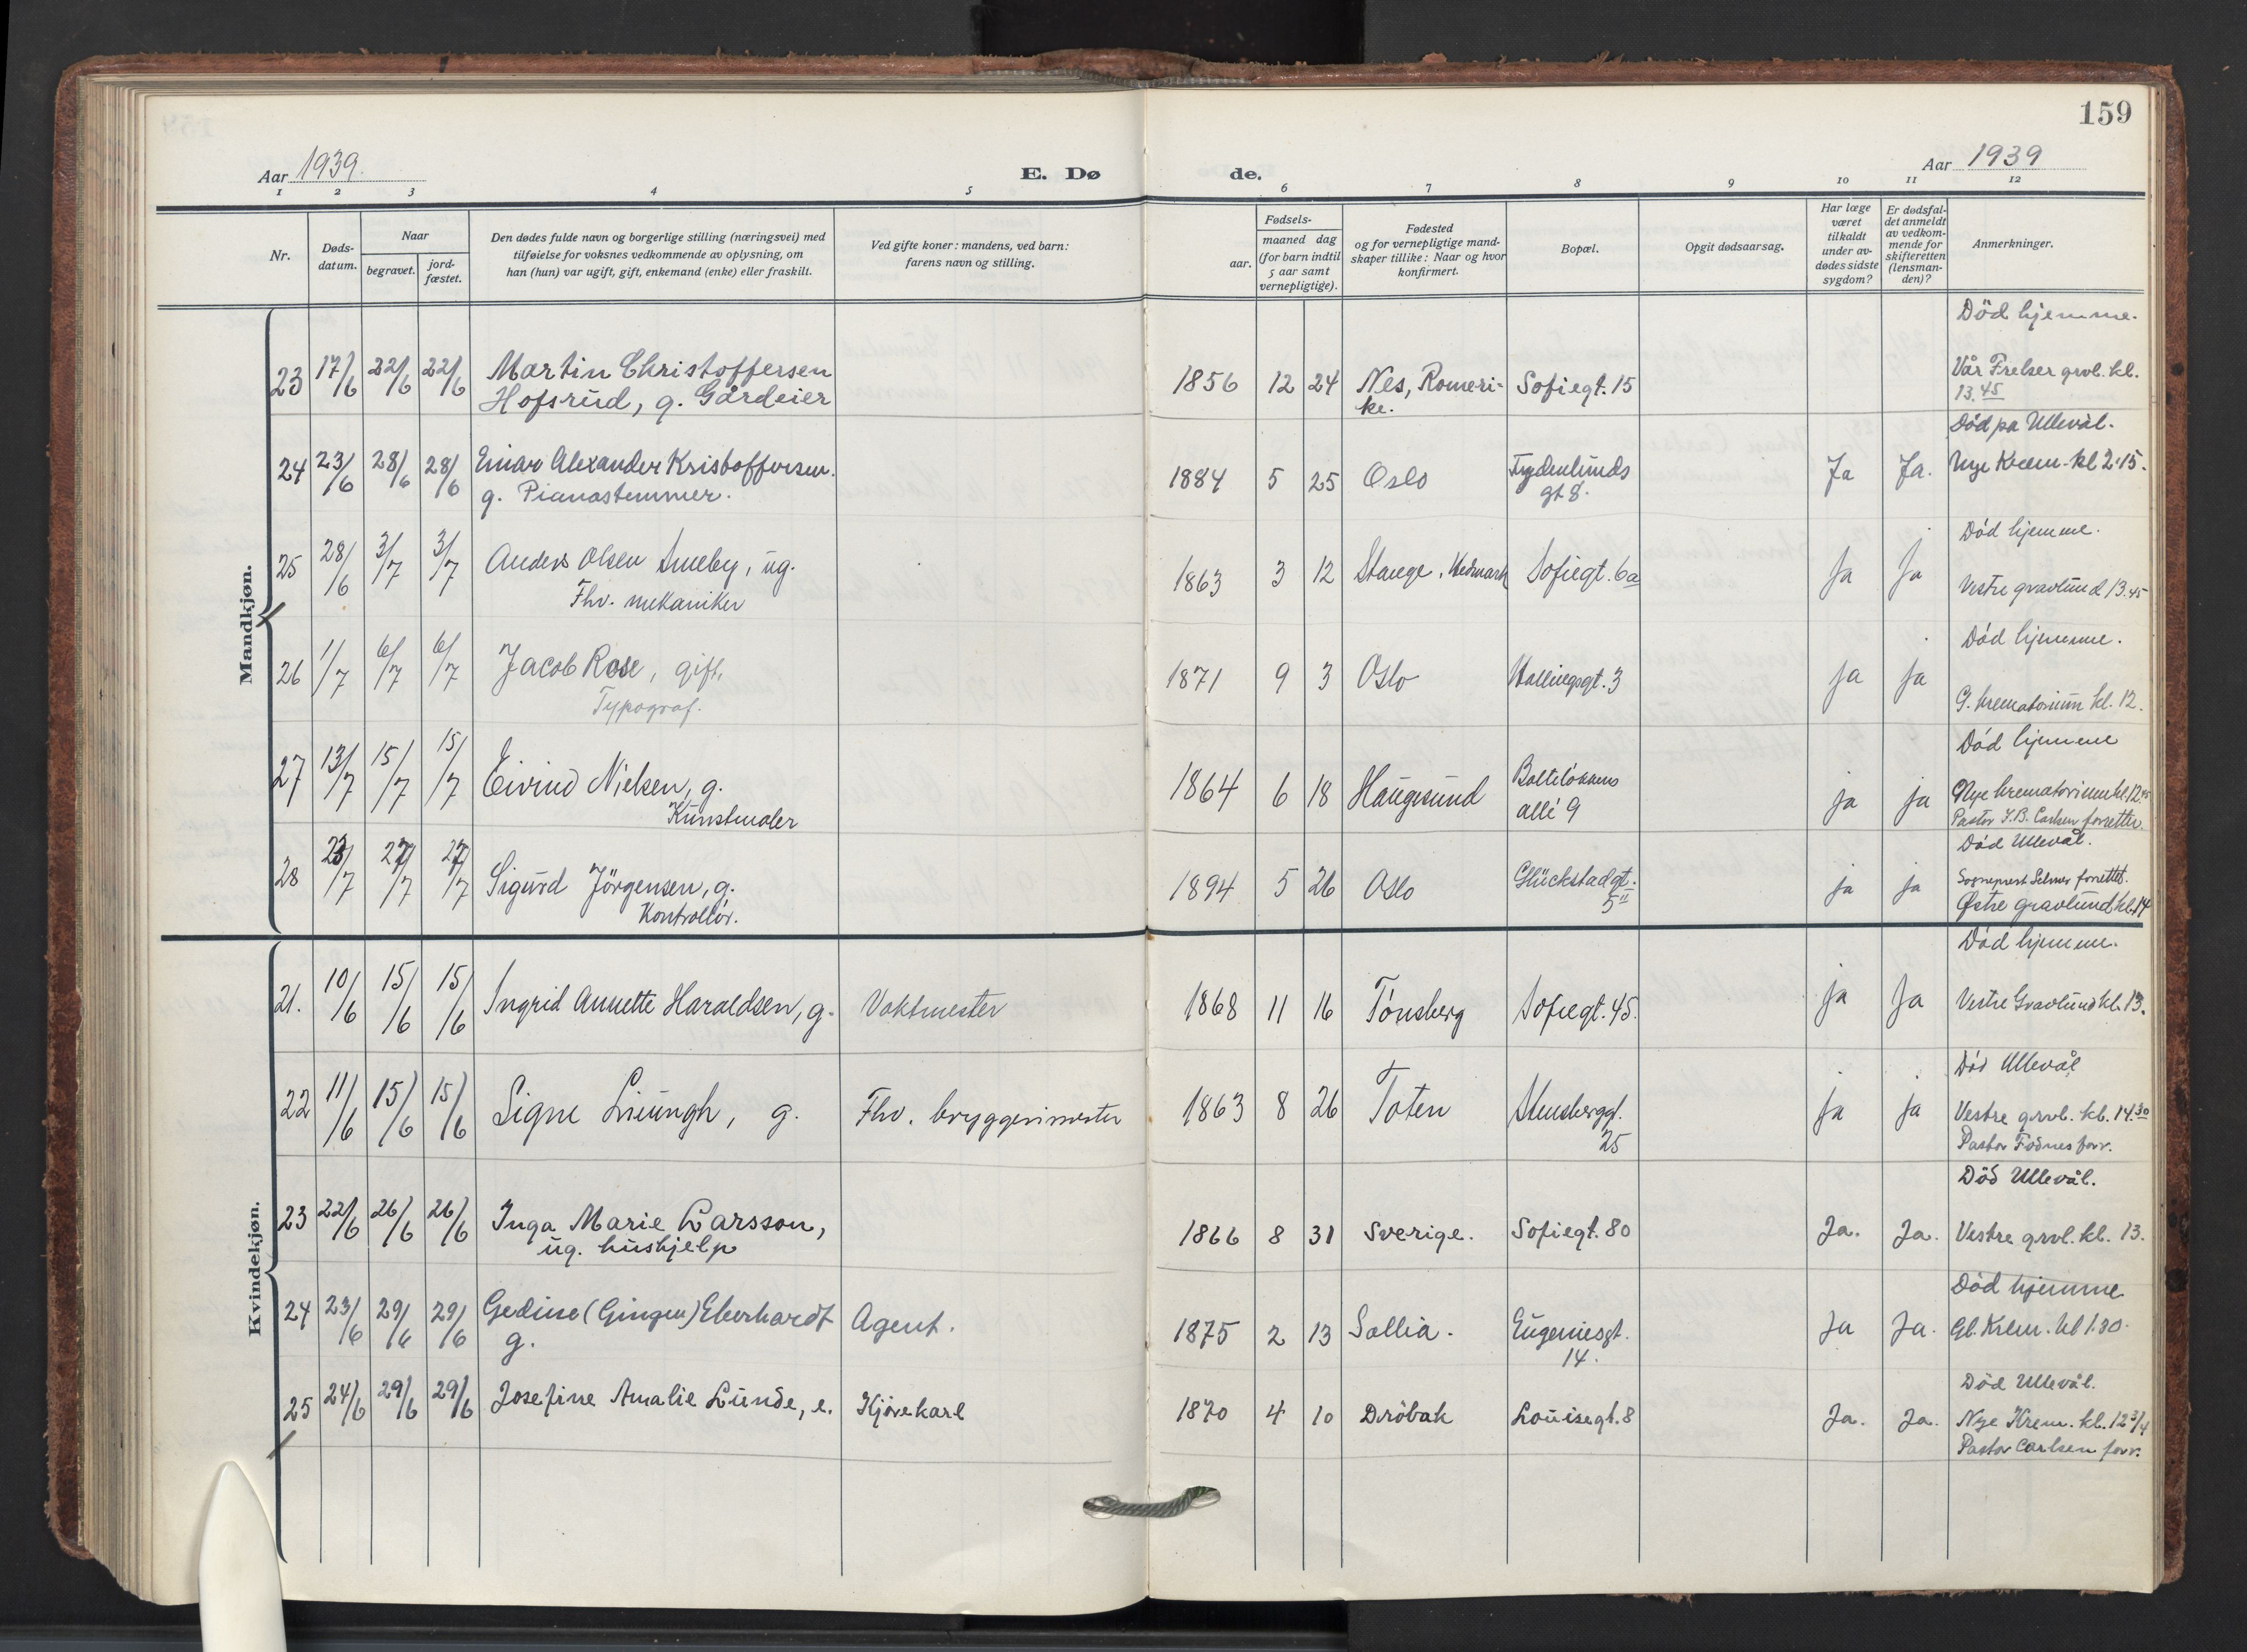 159
Aar 1939.
E. Dø de.
Aar 1939
1 2 3 4 5 6 7 8 9 10 11 12
Nr.
Døds-
datum.
Naar
begravet.
jord-
fæstet.
Den dødes fulde navn og borgerlige stilling (næringsvei) med
tilføielse for voksnes vedkommende av oplysning, om
han (hun) var ugift, gift, enkemand (enke) eller fraskilt.
Ved gifte koner: mandens, ved barn:
farens navn og stilling.
Fødsels-
aar.
maaned dag
(for barn indtil
5 aar samt
vernepligtige).
Fødested
og for vernepligtige mand-
skaper tillike: Naar og hvor
konfirmert.
Bopæl.
Opgit dødsaarsag.
Har læge
været
tilkaldt
under av-
dødes sidste
sygdom?
Er dødsfal-
det anmeldt
av vedkom-
mende for
skifteretten
(lensman-
den)?
Anmerkninger.
Mandkjøn.
Död hjemme.
23 17/6 22/6 22/6 Martin Christoffersen 1856 12 24 Nes, Romeri- Sofiegt. 15 Vår Frelser grvl. kl.
Hofsrud, g. Gårdeier ke. 13.45
Död på Ullevål.
24 23/6 28/6 28/6 Einar Alexander Kristoffersen. 1884 5 25 Oslo Frydenlunds Ja Ja. Nye Krem. kl 2.15.
g. Pianostemmer. gt 8.
Död hjemme.
25 28/6 3/7 3/7 Anders Olsen Smeby, ug. 1863 3 12 Stange, Hedmark Sofiegt. 6a Ja Ja Vestre gravlund 13.45
Fhv. mekaniker
Död hjemme.
26 1/7 6/7 6/7 Jacob Rose, gift, 1871 9 3 Oslo Hallingsgt. 3 ja ja G. krematorium kl. 12.
Typograf.
Död hjemme
27 13/7 15/7 15/7 Eivind Nielsen, g. 1864 6 18 Haugesund Balteløkkens ja ja Nye krematorium kl. 12.45
Kunstmaler allé 9 Pastor Carlsen forretter.
Död Ullevål.
28 23/7 27/7 27/7 Sigurd Jörgensen, g. 1894 5 26 Oslo Glückstadgt. ja ja Sogneprest Selmer forrettet.
Kontrollør. 5" Østre gravlund kl. 14
Kvindekjøn.
Död hjemme.
21. 10/6 15/6 15/6 Ingrid Annette Haraldsen, g. Vaktmester 1868 11 16 Tönsberg Sofiegt. 45. ja Ja Vestre Gravlund kl. 13.
Död Ullevål
22 11/6 15/6 15/6 Signe Liungh, g. Fhv. bryggerimester 1863 8 26 Toten Stensberggt. ja ja Vestre grvl. kl. 14.30
25 Pastor Fodnes forr.
Död Ullevål.
23 22/6 26/6 26/6 Inga Marie Larsson, 1866 8 31 Sverige. Sofiegt. 80 Ja. Ja. Vestre grvl. kl. 13.
ug. hushjelp
Död hjemme
24 23/6 29/6 29/6 Gedine (Gingen) Eberhardt Agent. 1875 2 13 Sollia. Eugeniesgt. Ja Ja. Gl. Krem. kl 1.30.
g. 14.
Död Ullevål.
25 24/6 29/6 29/6 Josefine Amalie Lunde, e. Kjørekarl 1870 4 10 Dröbak Louisegt. 8 Ja. Ja. Nye Krem. kl. 12 3/4
Pastor Carlsen forr.